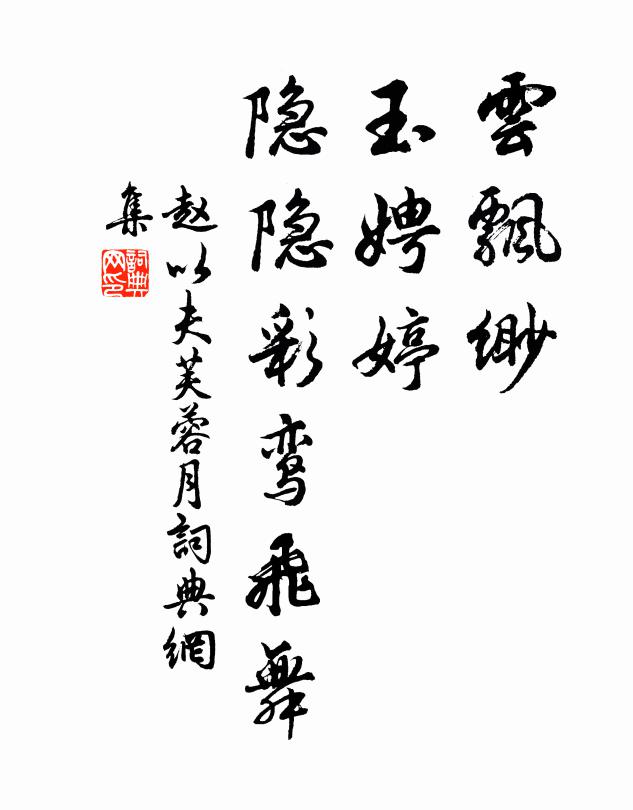 雲飄緲
玉娉婷
隐隐彩鸾飛舞
赵以夫芙蓉月詞典網
集
詞典
网印